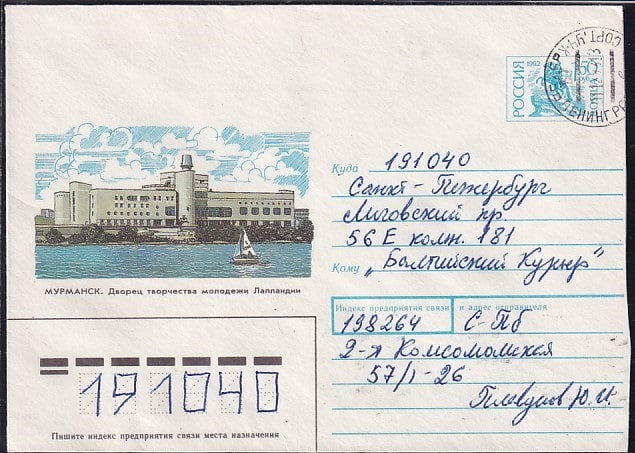 РОССИЯ 1992 50
ЛЕНИНГР
Куда 191040
Санкт-Петербург
Лиговский пр.
56 Е комн. 181
Кому „Балтийский Курьер"
МУРМАНСК. Дворец творчества молодежи Лапландии
Индекс предприятия связи и адрес отправителя
198264 С-Пб
2-я Комсомолмская
57/1-26
Ю.И.
191040
Пишите индекс предприятия связи места назначения